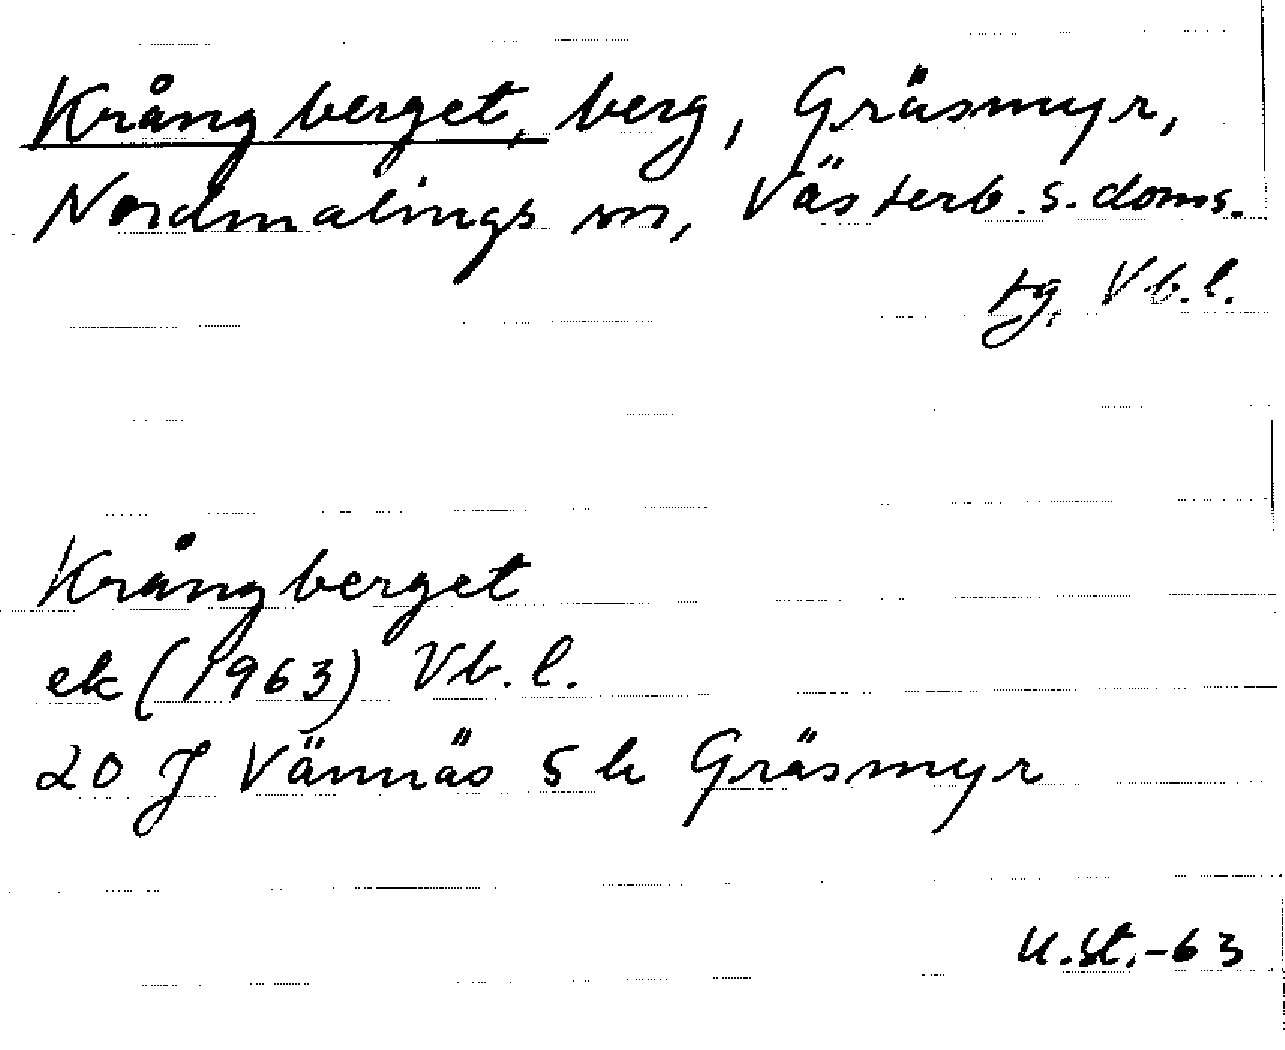 Krångberget, berg, Gräsmyr,
Nordmalings sn, Västerb. s. doms.
tg. Vb. l.
Krångberget
ek (1963) Vb. l.
20 J Vännäs 5 h Gräsmyr
U.St.-63